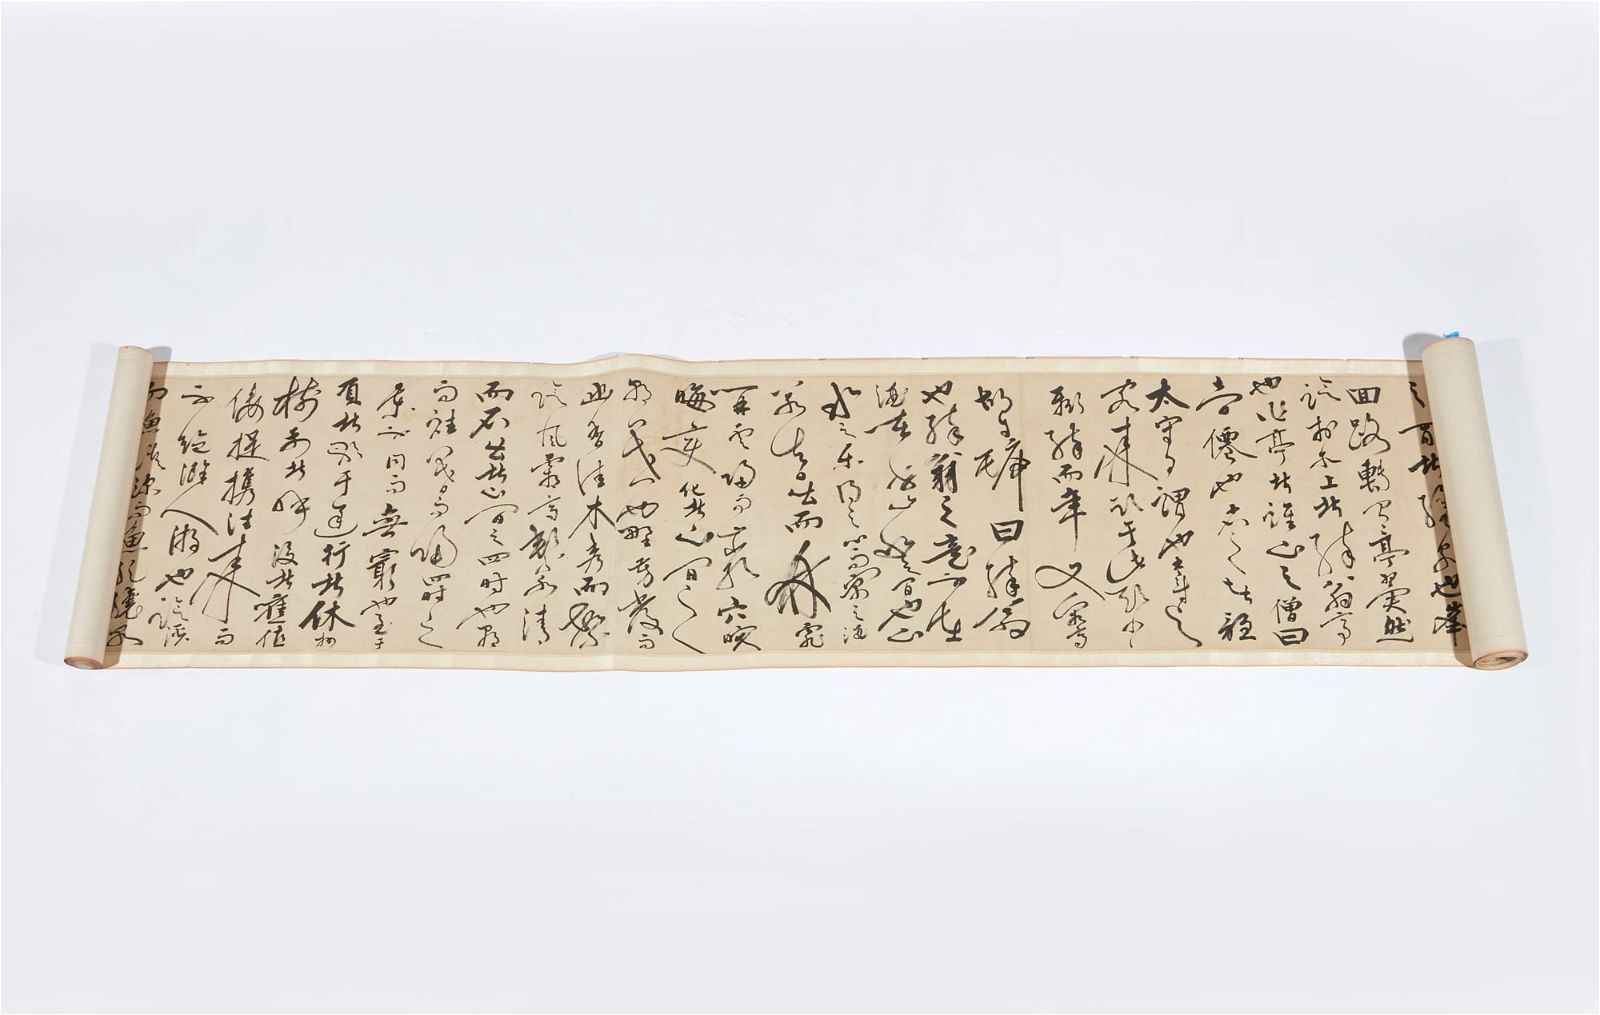 之間者釀泉也峰
回路轉有亭翼然
臨於泉上者醉翁亭
也作亭者誰山之僧曰
智僊也名之者誰
太守自謂也太守與
客來飲于此飲少
輒醉而年又最高
故自號曰醉翁
也醉翁之意不在
酒在乎山水之間也山
水之樂得之心而寓之酒
若夫日出而林霏
開雲歸而巖穴暝
晦變化者山間之
朝暮也野芳發而
幽香佳木秀而繁
陰風霜高潔水清
而石出者山間之四時也朝
而往暮而歸四時之
景不同而無窮也至于
負者歌于塗行者休於
樹前者呼後者應傴
僂提攜往來而
不絕滁人遊也臨谿
而魚溪深而魚肥釀泉